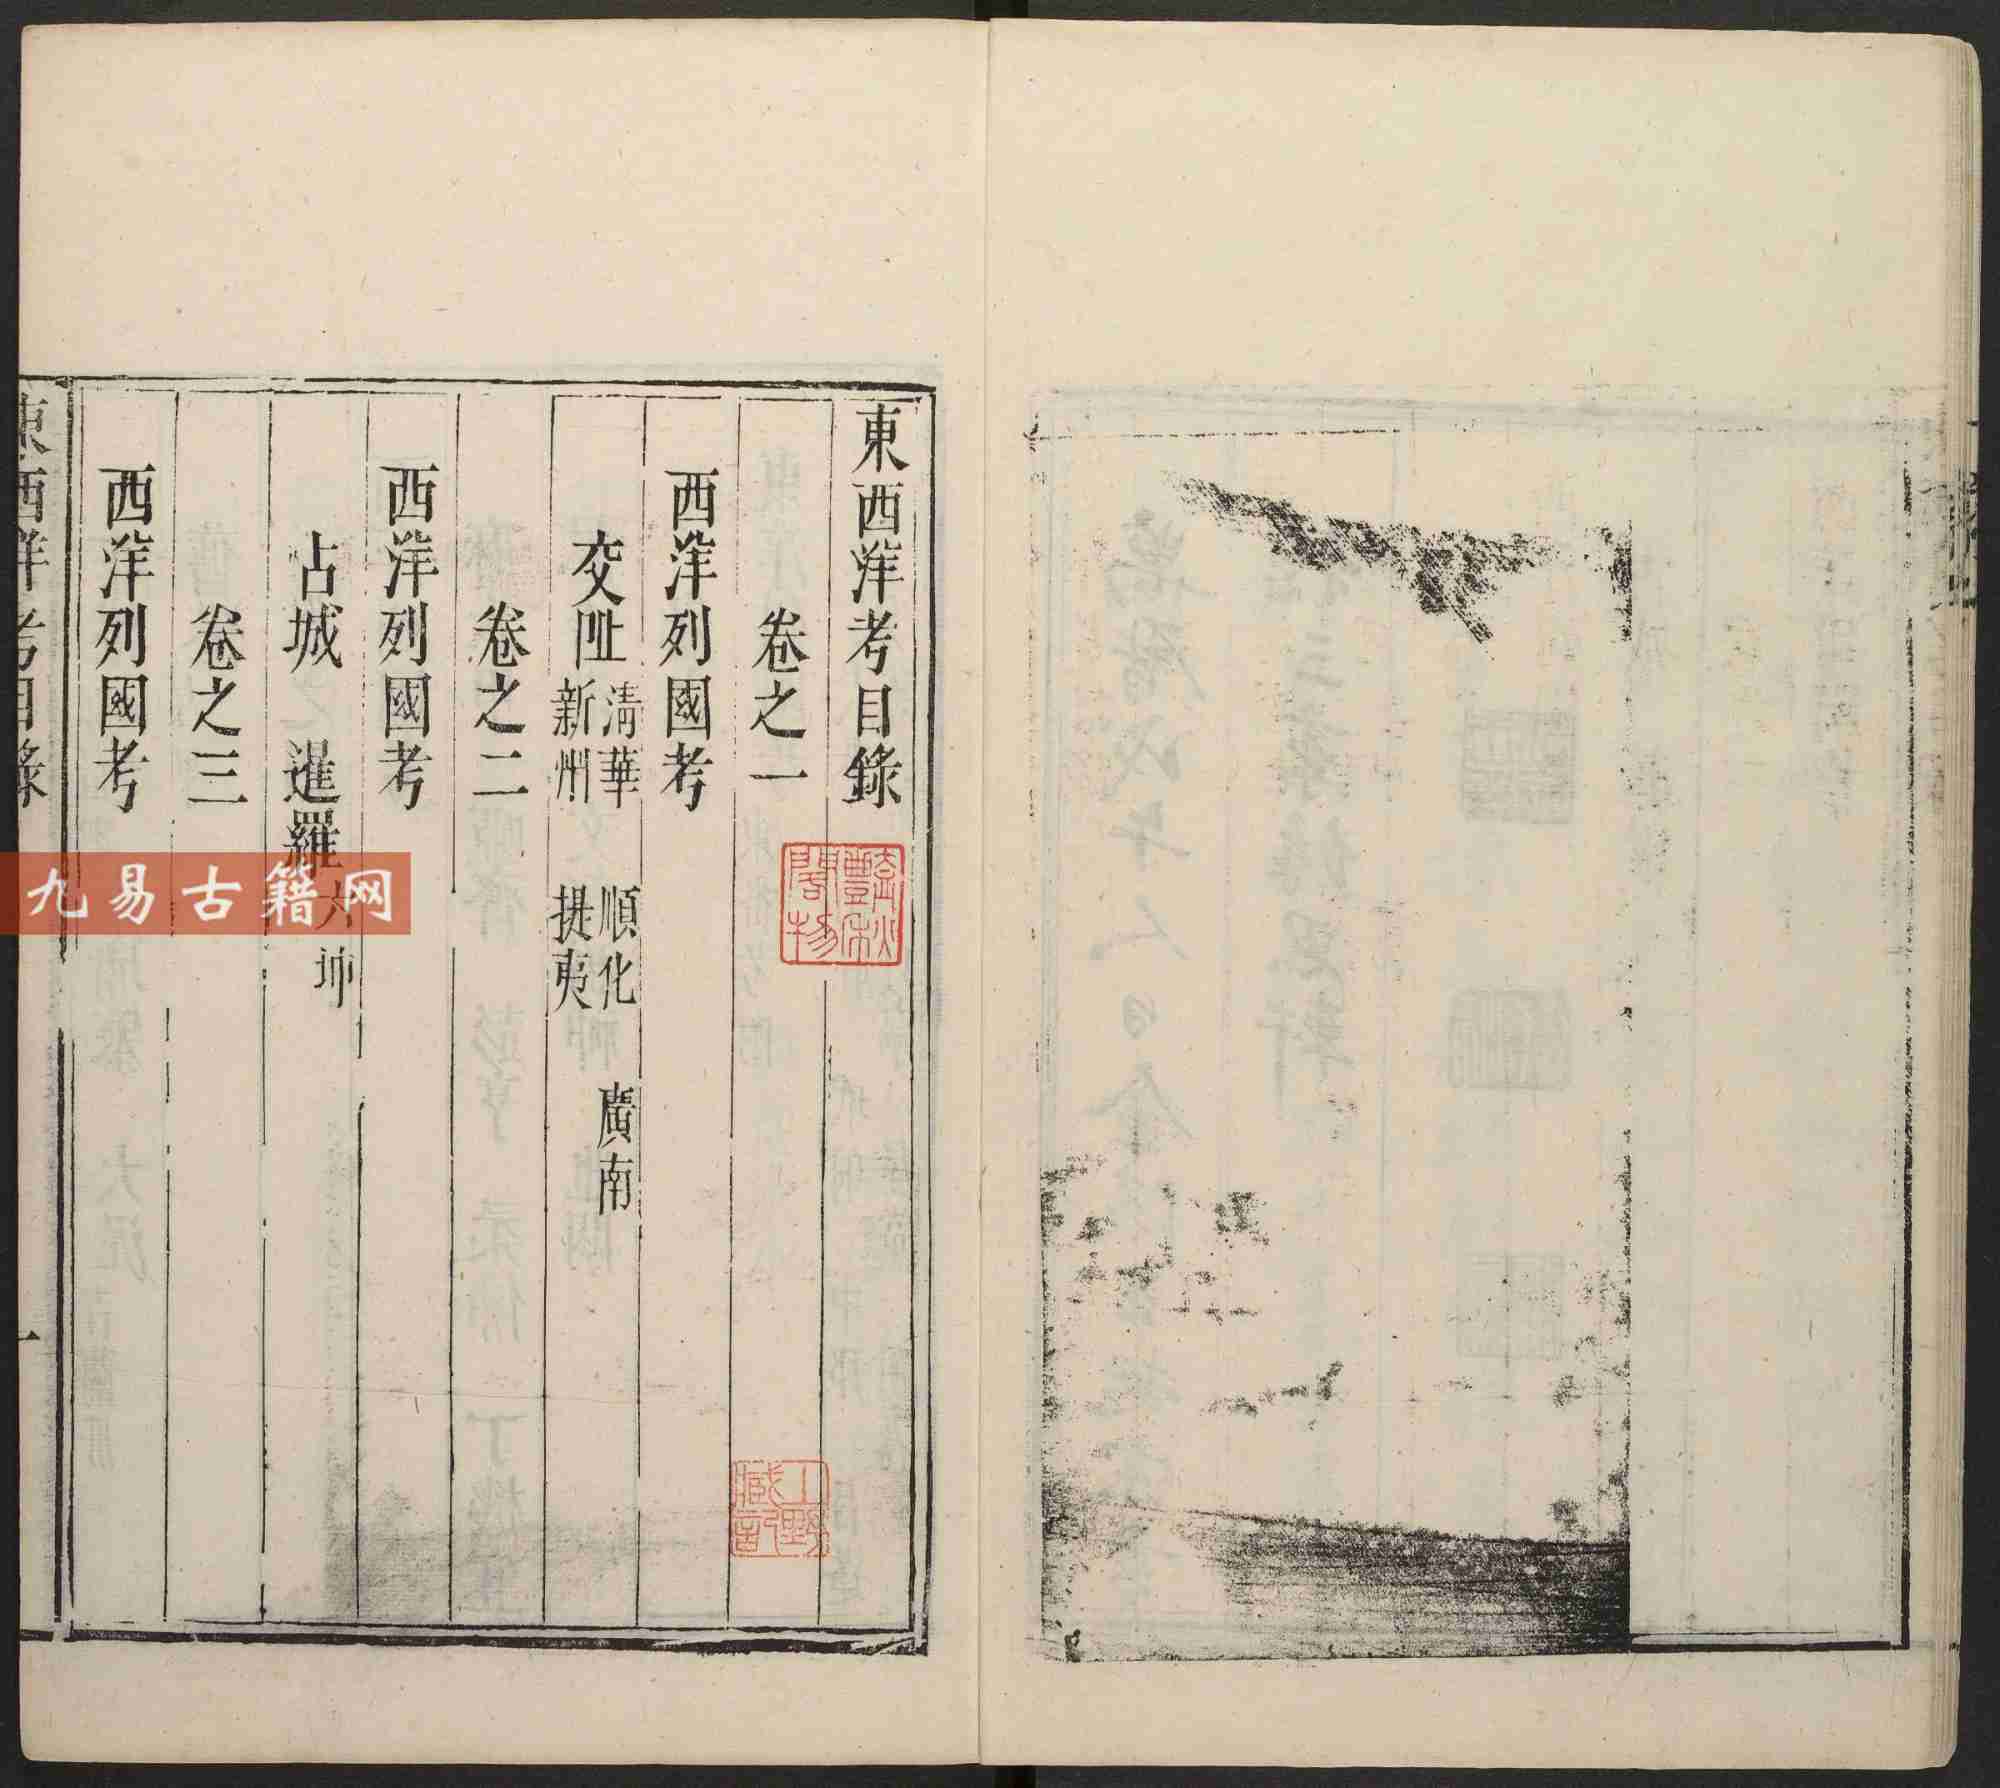 東西洋考目錄
卷之一
西洋列國考
交阯 清華 順化 廣南
新州 提夷
卷之二
西洋列國考
占城 暹羅 六坤
卷之三
西洋列國考
東西洋考目錄
一
九易古籍网